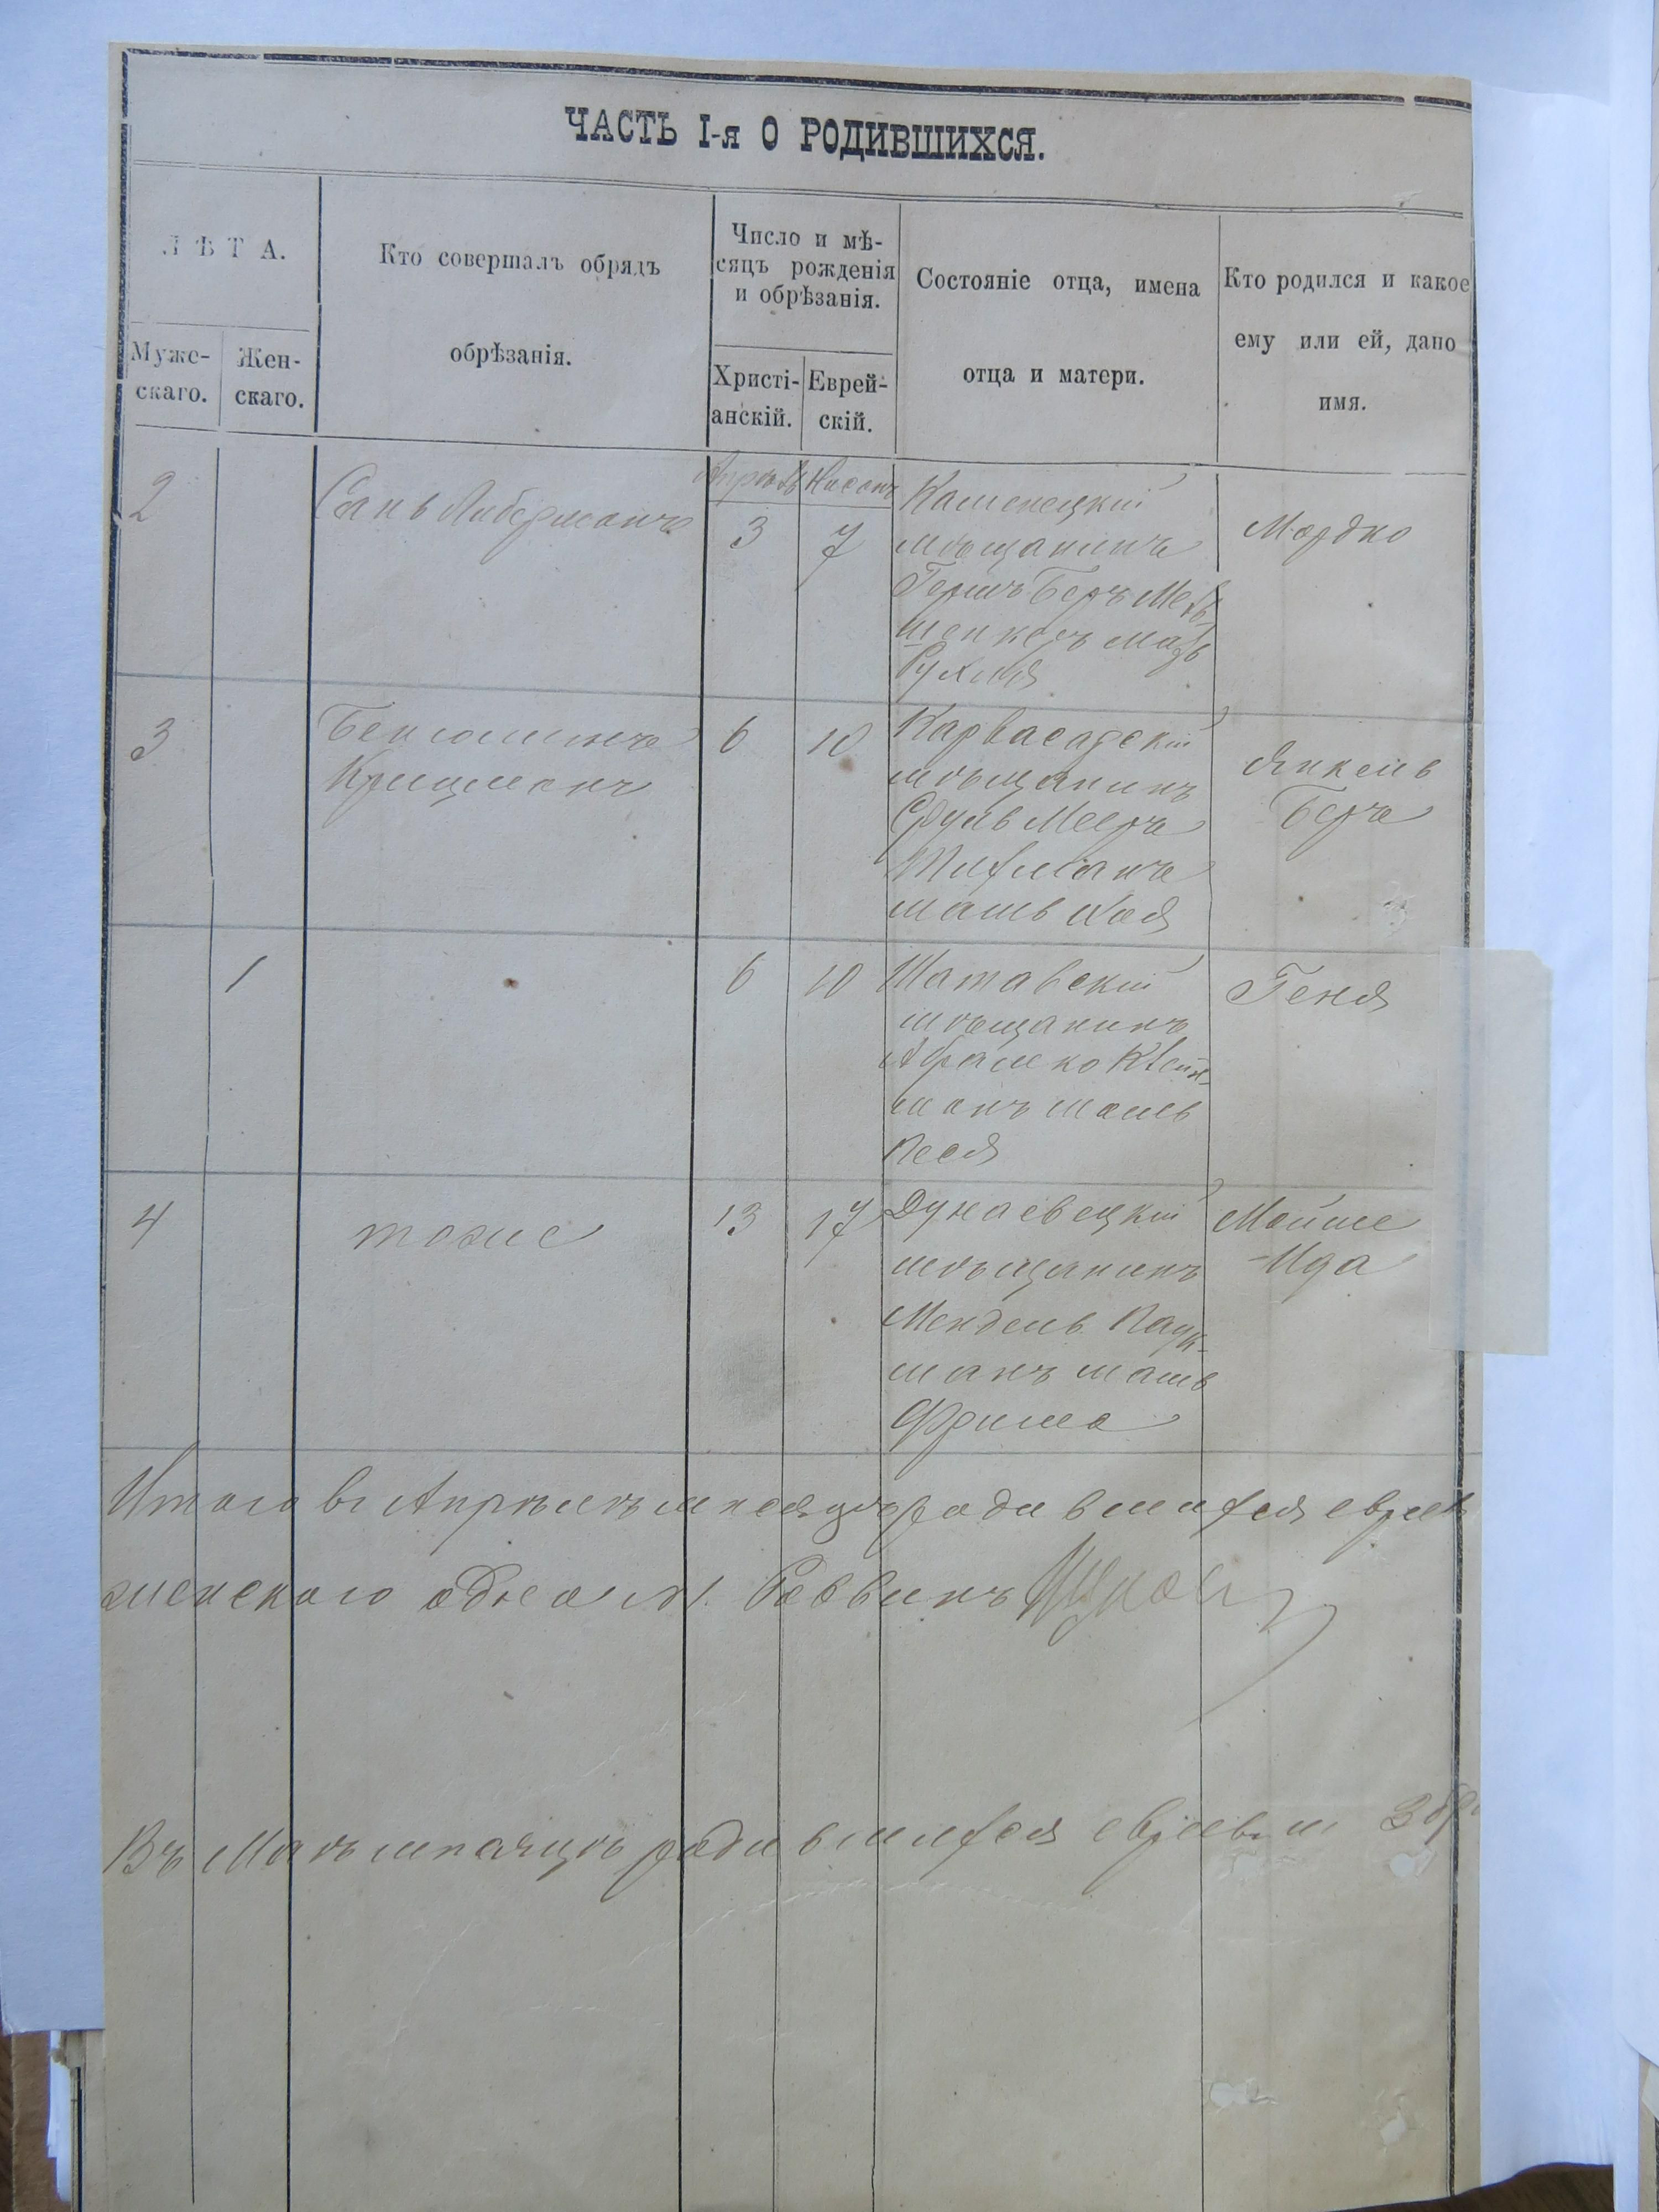 ЧАСТЬ I-я О РОДИВШИХСЯ.
ЛѢТА.
Муже-
скаго.
Жен-
скаго.
Кто совершалъ обрядъ
обрѣзанія.
Число и мѣ-
сяцъ рожденія
и обрѣзанія.
Христі-
анскій.
Еврей-
скій.
Состояніе отца, имена
отца и матери.
Кто родился и какое
ему или ей, дано
имя.
2
Либерманъ
Апрѣль
3
Нисонъ
7
Каменецкій
мѣщанинъ
Гершъ Беръ
Рухля
Мордко
3
Бенюминъ
Крицманъ
6
10
Карвасарскій
мѣщанинъ
Сруль Мееръ
мать Хая
Янкель
Беръ
1
6
10
Шатавскій
мѣщанинъ
Абрамко Клейн-
манъ мать
Песя
Геня
4
тоже
13
17
Дунаевецкій
мѣщанинъ
Мендель
манъ мать
Фрима
Мойше
Ида
Итого въ Апрѣлѣ месяцѣ родившихся евреевъ
женского одна №1. Раввинъ
Въ Маѣ месяцѣ родившихся евреевъ